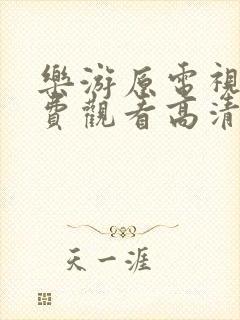 樂游原電視
費觀看高清
天一涯